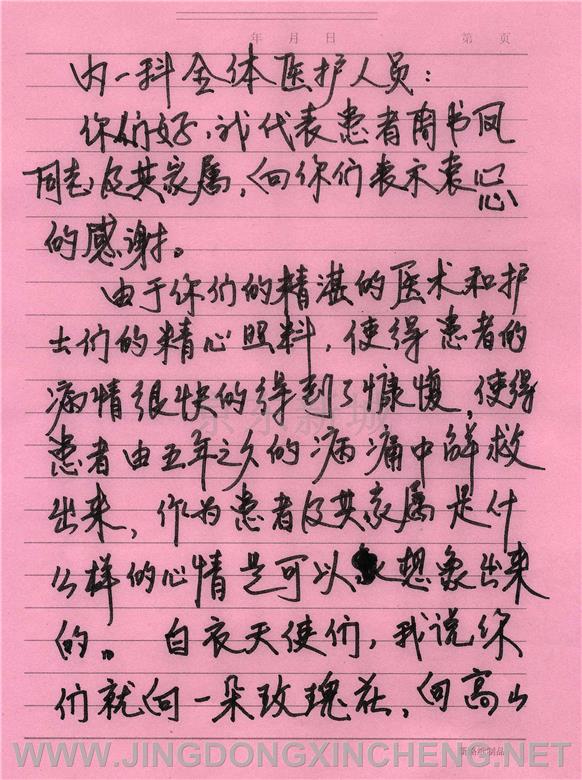 年 月 日 第 页
内一科全体医护人员:
你们好,我代表患者周书凤
同志及其家属,向你们表示衷心
的感谢。
由于你们的精湛的医术和护
士们的精心照料,使得患者的
病情很快的得到了慷愎,使得
患者由五年之久的病痛中解救
出来,作为患者及其家属是什
么样的心情是可以想象出来
的。 白衣天使们,我说你
们就向一朵玫瑰花,向高山
京东新城
新洛雅制品
WWW.JINGDONGXINCHENG.NET